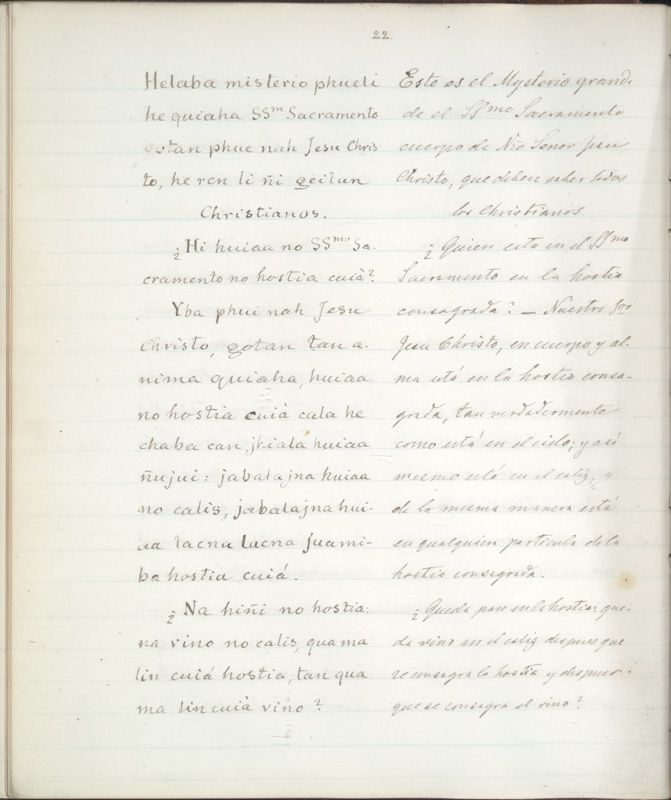 22.
Helaba misterio phueli
he quiaha SSm Sacramento
gotan phue nah Jesu Chris
to, he ren li ñi geilun
Christianos.
¿Hi huiaa no SSmo Sa-
cramento no hostia cuià?
Yba phui nah Jesu
Christo, gotan tan a-
nima quiaha, huiaa
no hostia cuià cala he
chaba can, jhialá huiaa
ñujui: jabalajna huiaa
no calis, jabalajna hui-
aa lacna lacna juami-
ba hostia cuiá.
¿Na hiñi no hostia:
na vino no calis, qua ma
lin cuiá hostia, tan qua
ma lin cuià vino?
Este es el Mysterio grande
de el SSmo Sacramento
cuerpo de Nro Señor Jesu
Christo, que deben saber todos
los Christianos
¿Quien esta en el SSmo
Sacramento en la hostia
consagrada? — Nuestro Sor
Jesu Christo, en cuerpo y al-
ma está en la hostia consa-
grada, tan verdadermente
como está en el cielo; y asi
mesmo está en el caliz, y
de la mesma manera está
en qualquiera particula de la
hostia consagrada.
¿Queda pan en la hostia: que-
da vino en el caliz despues que
se consagra la hostia y despues
que se consagra el vino?